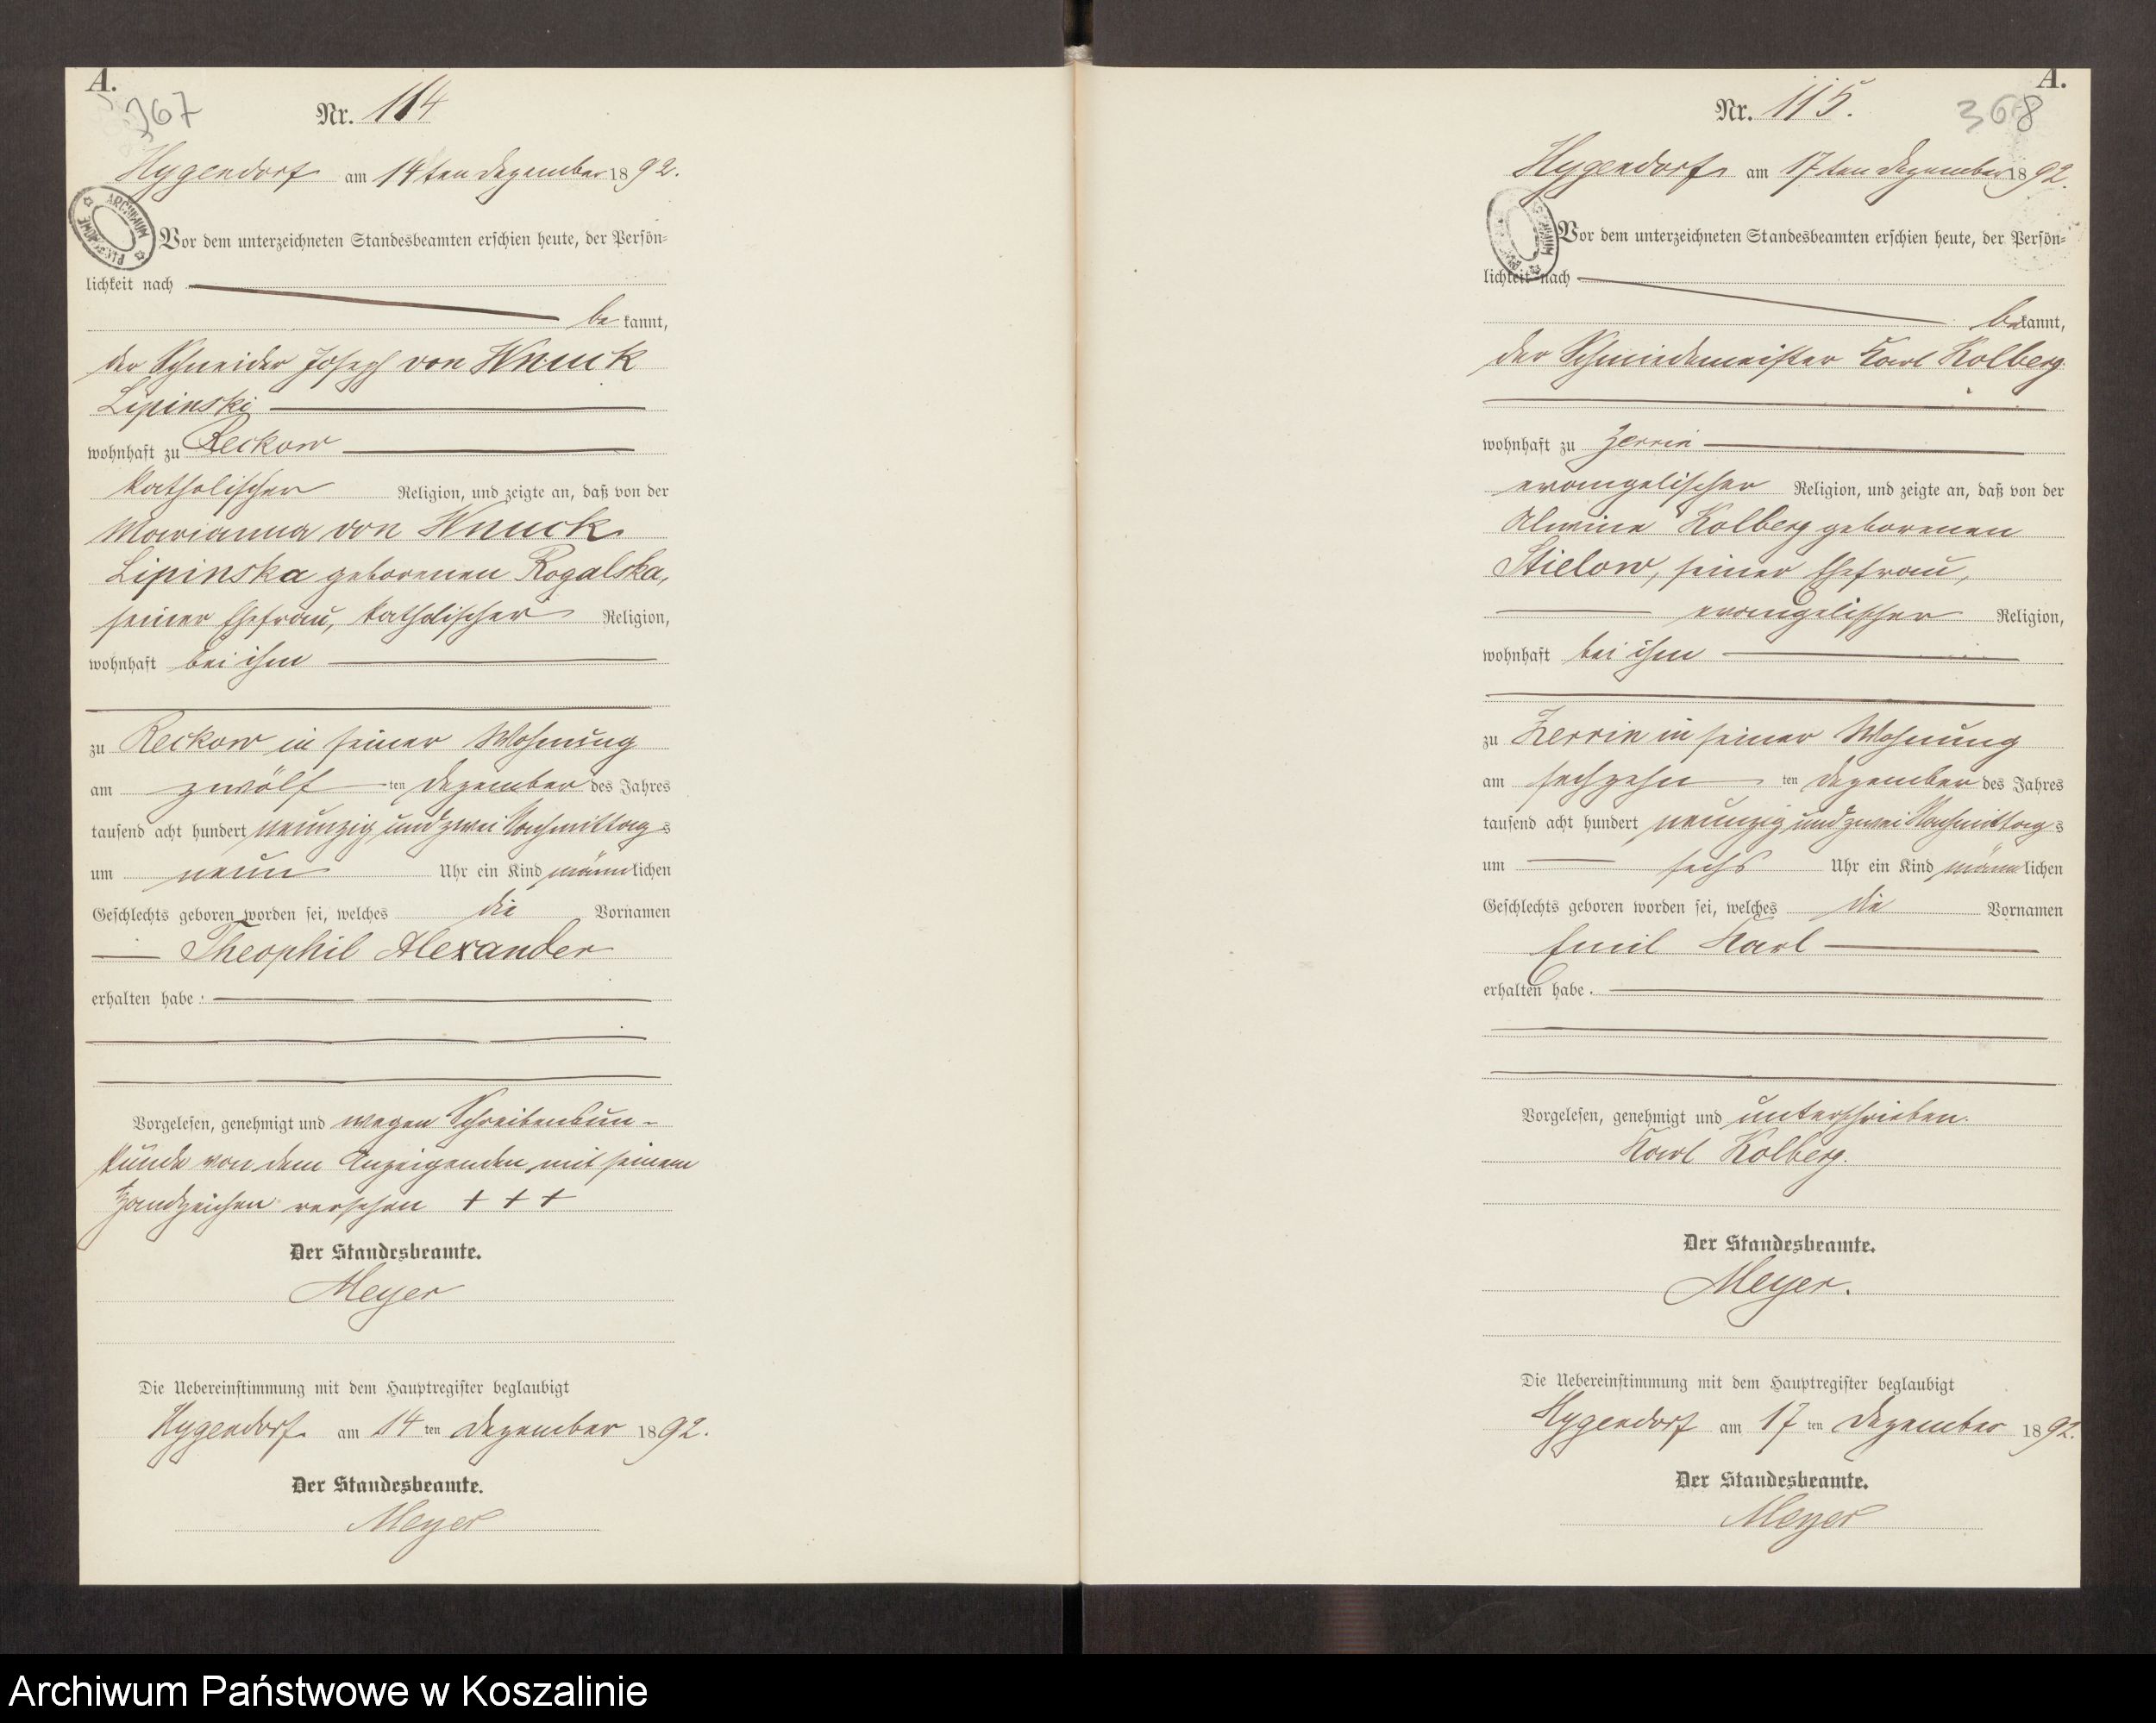 A.
367
Nr. 114
Hygendorf am 14ten Dezember 1892.
Vor dem unterzeichneten Standesbeamten erschien heute, der Persön-
lichkeit nach
bekannt,
der Schneider Joseph von Wnuck
Lipinski
wohnhaft zu Reckow
katholischer Religion, und zeigte an, daß von der
Marianna von Wnuck
Lipinska geborenen Rogalska,
seiner Ehefrau, katholischer Religion,
wohnhaft bei ihm
zu Reckow in seiner Wohnung
am zwölf ten Dezember des Jahres
tausend acht hundert neunzig und zwei Nachmittags
um neun Uhr ein Kind männlichen
Geschlechts geboren worden sei, welches die Vornamen
Theophil Alexander
erhalten habe.
Vorgelesen, genehmigt und wegen Schreibensun-
kunde von dem Anzeigenden mit seinem
Handzeichen versehen + + +
Der Standesbeamte.
Meyer
Die Uebereinstimmung mit dem Hauptregister beglaubigt
Hygendorf am 14 ten Dezember 1892.
Der Standesbeamte.
Meyer
A.
368
Nr. 115.
Hygendorf am 17ten Dezember 1892.
Vor dem unterzeichneten Standesbeamten erschien heute, der Persön-
lichkeit nach
bekannt,
der Schmiedemeister Karl Kolberg
wohnhaft zu Zerrin
evangelischer Religion, und zeigte an, daß von der
Alwine Kolberg geborenen
Stielow, seiner Ehefrau,
evangelischer Religion,
wohnhaft bei ihm
zu Zerrin in seiner Wohnung
am sechzehn ten Dezember des Jahres
tausend acht hundert neunzig und zwei Nachmittags
um sechs Uhr ein Kind männlichen
Geschlechts geboren worden sei, welches die Vornamen
Emil Karl
erhalten habe.
Vorgelesen, genehmigt und unterschrieben.
Karl Kolberg.
Der Standesbeamte.
Meyer.
Die Uebereinstimmung mit dem Hauptregister beglaubigt
Hygendorf am 17 ten Dezember 1892.
Der Standesbeamte.
Meyer
Archiwum Państwowe w Koszalinie